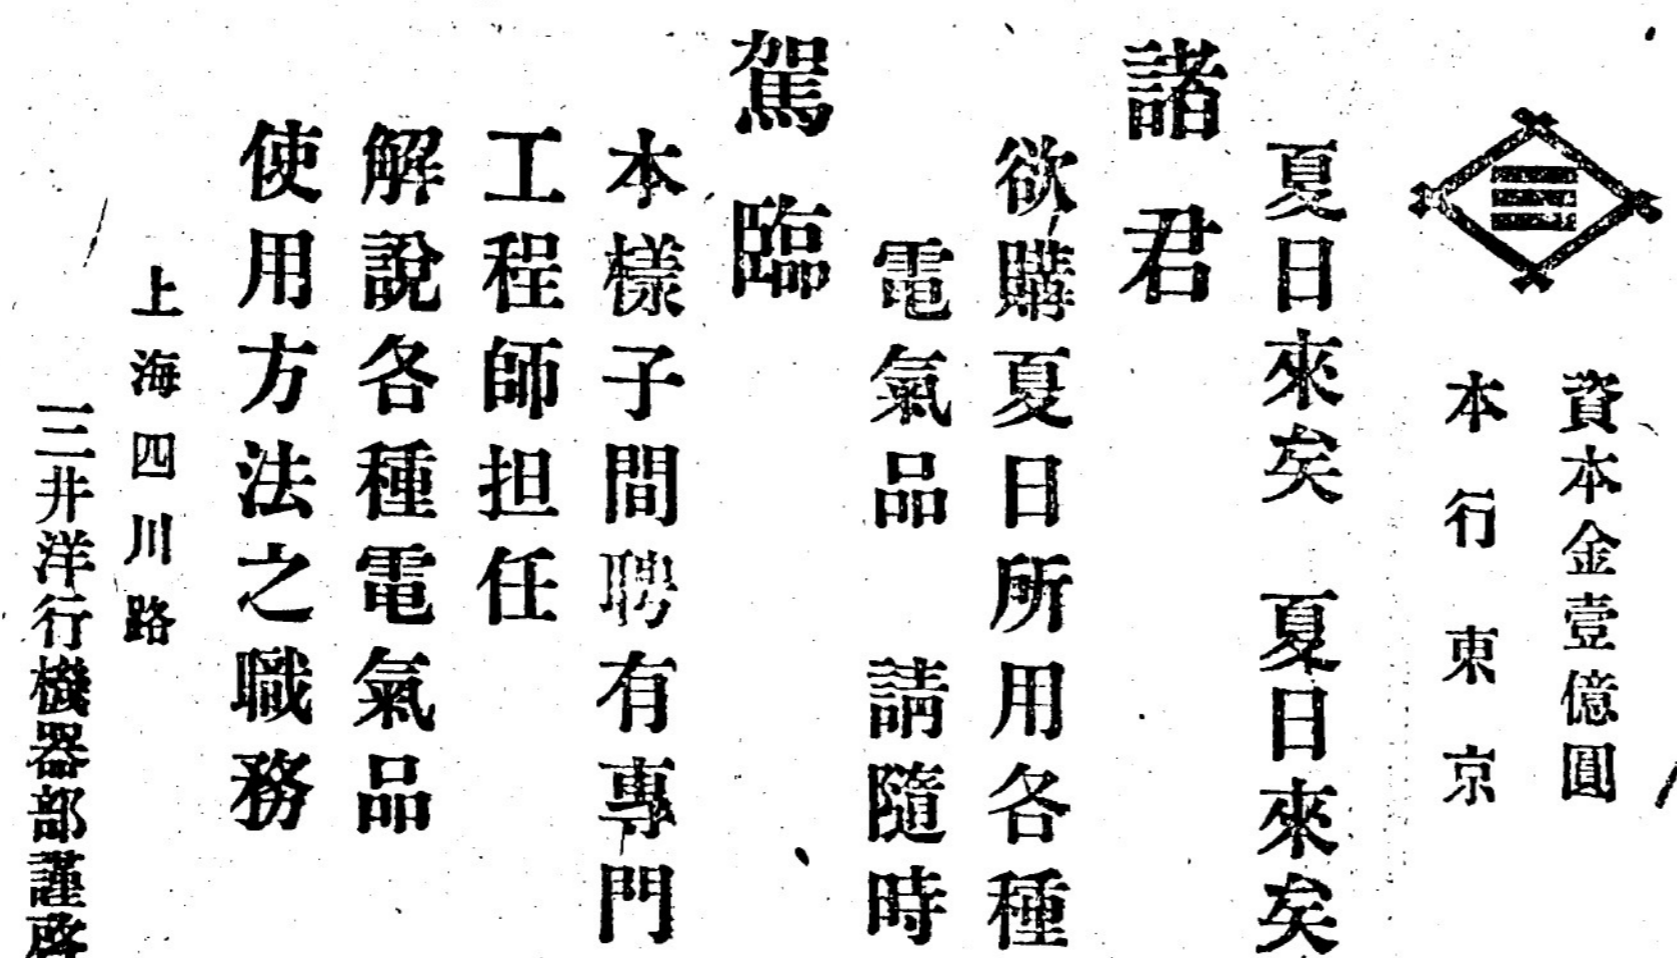 資本金壹億圓
本行東京
夏日來矣　夏日來矣
諸君
欲購夏日所用各種
電氣品　請隨時
駕臨
本樣子間聘有專門
工程師担任
解說各種電氣品
使用方法之職務
上海四川路
三井洋行機器部謹啓